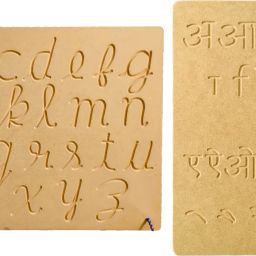 c d e f g
k l m n
q r s t u
x y z
अ आ
ए ऐ ओ